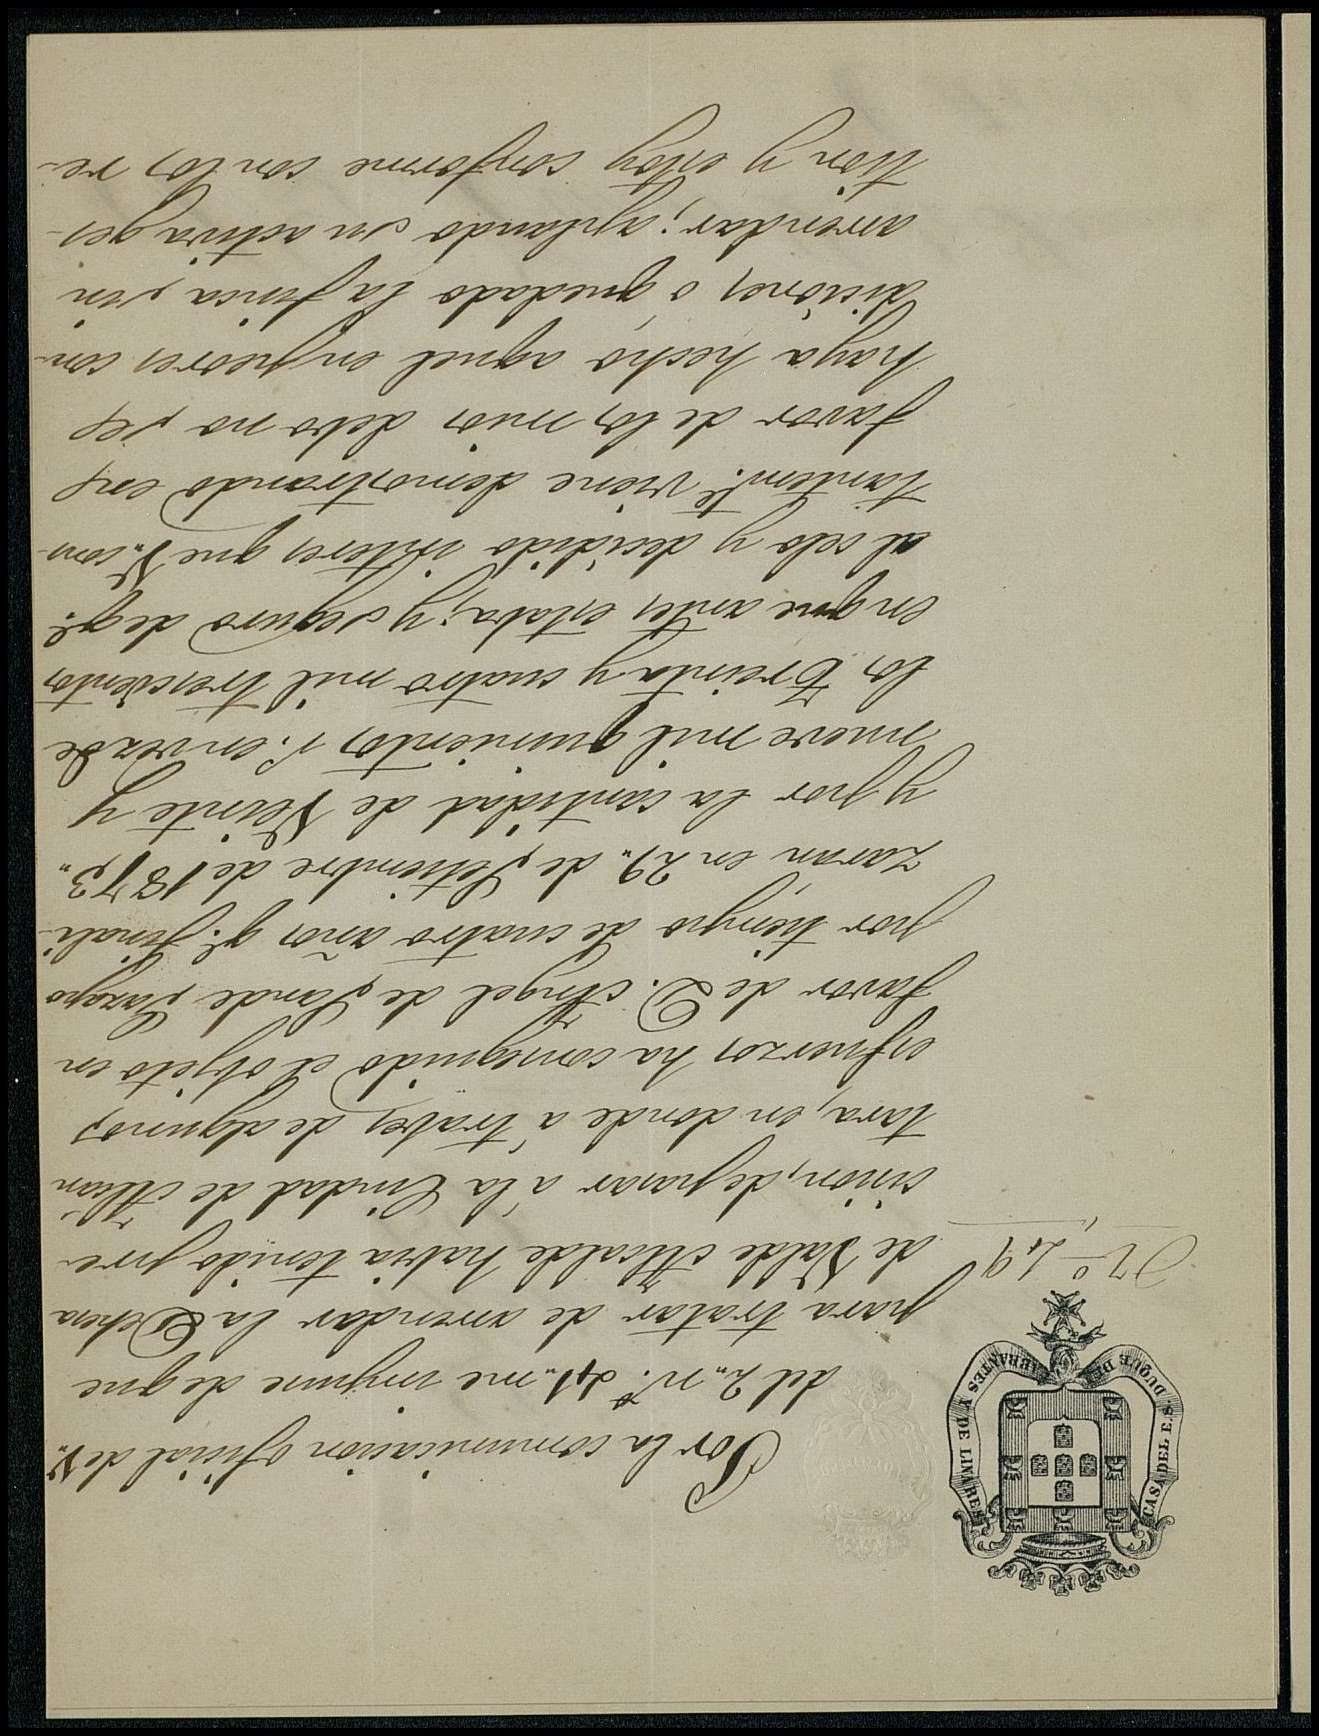 CASA DEL E.S. DUQUE DE ABRANTES Y DE LINARES
Nº 49
Por la comunicacion oficial de V.
del 2,, nº 41,, me impuse de que
para tratar de arrendar la Dehesa
de Valde Alcalde habia tenido pre-
cision, de pasar á la Ciudad de Alcán
tara, en donde á traves, de algunos
esfuerzos ha conseguido el objeto en
favor de D. Angel de Sande
por tiempo de cuatro años q.e finali-
zaran en 29,, de Setiembre de 1873,,
y por la cantidad de Veinte y
nueve mil quinientos r.s en vez de
los Treinta y cuatro mil trescientos
en que antes estaba; y seguro de q.e
al celo y decidido interes que V,, cons-
tantem.te viene demostrando en
favor de los mios debo no se
haya hecho aquel en peores con-
diciones, ó quedado la finca sin
arrendar; aplaudo su activa ges-
tion y estoy conforme con los re-